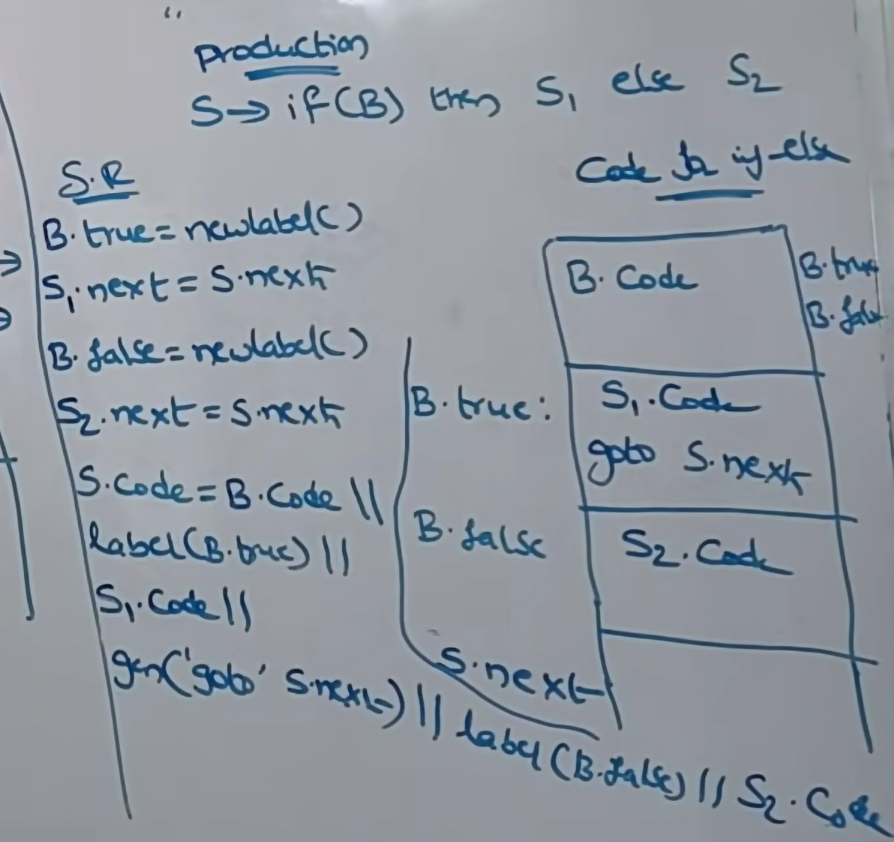 production
S→ if(B) then S₁ else S₂
S.R
B.true = newlabel()
S₁.next = S.next
B.false = newlabel()
S₂.next = S.next
S.code = B.Code ||
label(B.true) ||
S₁.Code ||
gen('goto' S.next) || label(B.false) || S₂.Code
Code for if-else
B.Code
B.true
B.false
B.true:
S₁.Code
goto S.next
B.false
S₂.Code
S.next